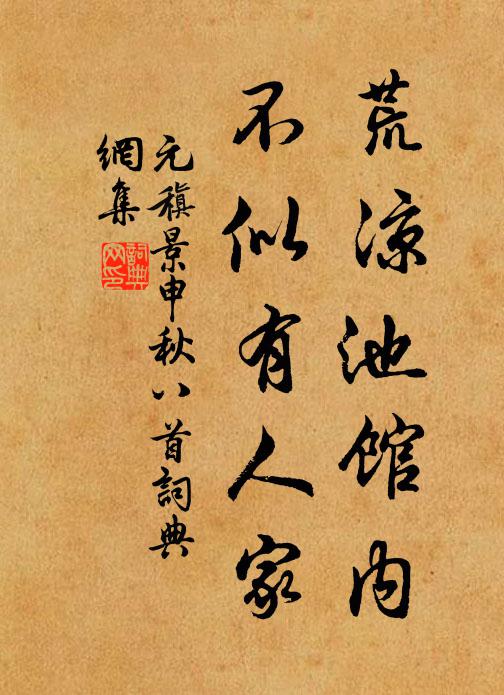 荒凉池館内
不似有人家
元稹景申秋八首詞典
網集
詞典
网印